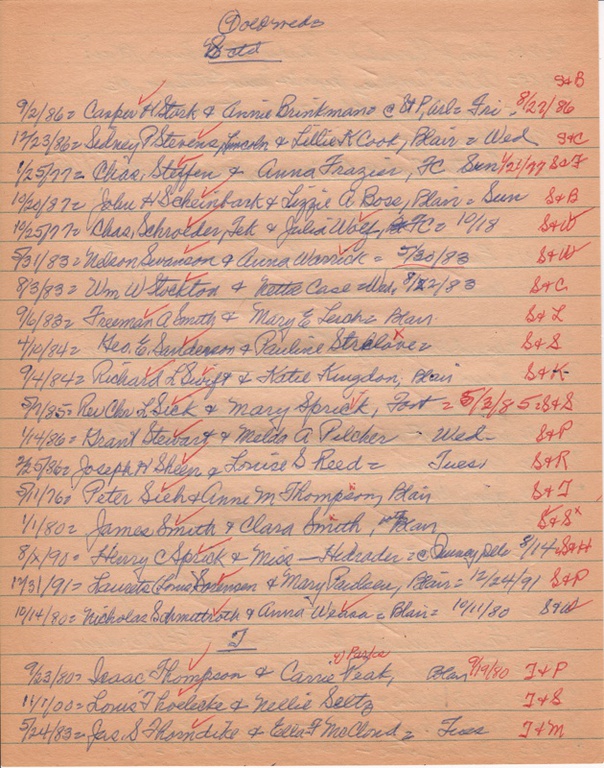 S&B
9/2/86 = Casper H Stork & Annie Brinkman = @ = Fri. 8/27/86
12/23/86 = Sedney P Stevens, Lincoln & Lillie K Cook, Blair = Wed S&C
1/25/77 = Chas, Steffen & Anna Frazier, FC Sun 1/21/77 S&F
10/20/87 = John H Scheinbark & Lizzie A Bose, Blair = Sun S&B
10/25/77 = Chas, Schroeder, Tek & Julia Wolf, FC = 10/18 S&W
5/31/83 = Nelson Swanson & Anna Warrick = 5/30/83 S&W
8/3/83 = Wm W Stockton & Nettie Case = Wed, S&C
9/6/83 = Freeman A Smith & Mary E Leich = Blair S&L
4/10/84 = Geo. E. Sanderson & Pauline = S&S
9/4/84 = Richard L Swift & Katie Kingdon, Blair S&K
5/7/85 = Rev Chr L Sick & Mary Sprick, Font = 5/3/85 = S&S
1/14/86 = Grant Stewart & Melda A Pilcher - Wed - S&P
2/25/86 = Joseph H Sheer & Louise S Reed = Tues, S&R
5/11/76 = Peter Sieh & Anne M Thompson, Blair S&T
1/1/80 = James Smith & Clara Smith, Blair S&S x
8/x/90 = Henry C Sprick & Miss — Hdrader = @ 8/14 S&H
12/31/91 = Laurets Sorensen & Mary Paulsen, Blair = 12/24/91 S&P
10/14/80 = Nicholas Schmittroth & Anna = Blair = 10/11/80 S&W
T
9/23/80 = Isaac Thompson & Carrie Peak, Blair 9/19/80 T&P
11/1/00 = Louis Thoelecke & Nellie Seltz T&S
5/24/83 = Jas. S Thorndike & Ella F McCloud = Tues T&M